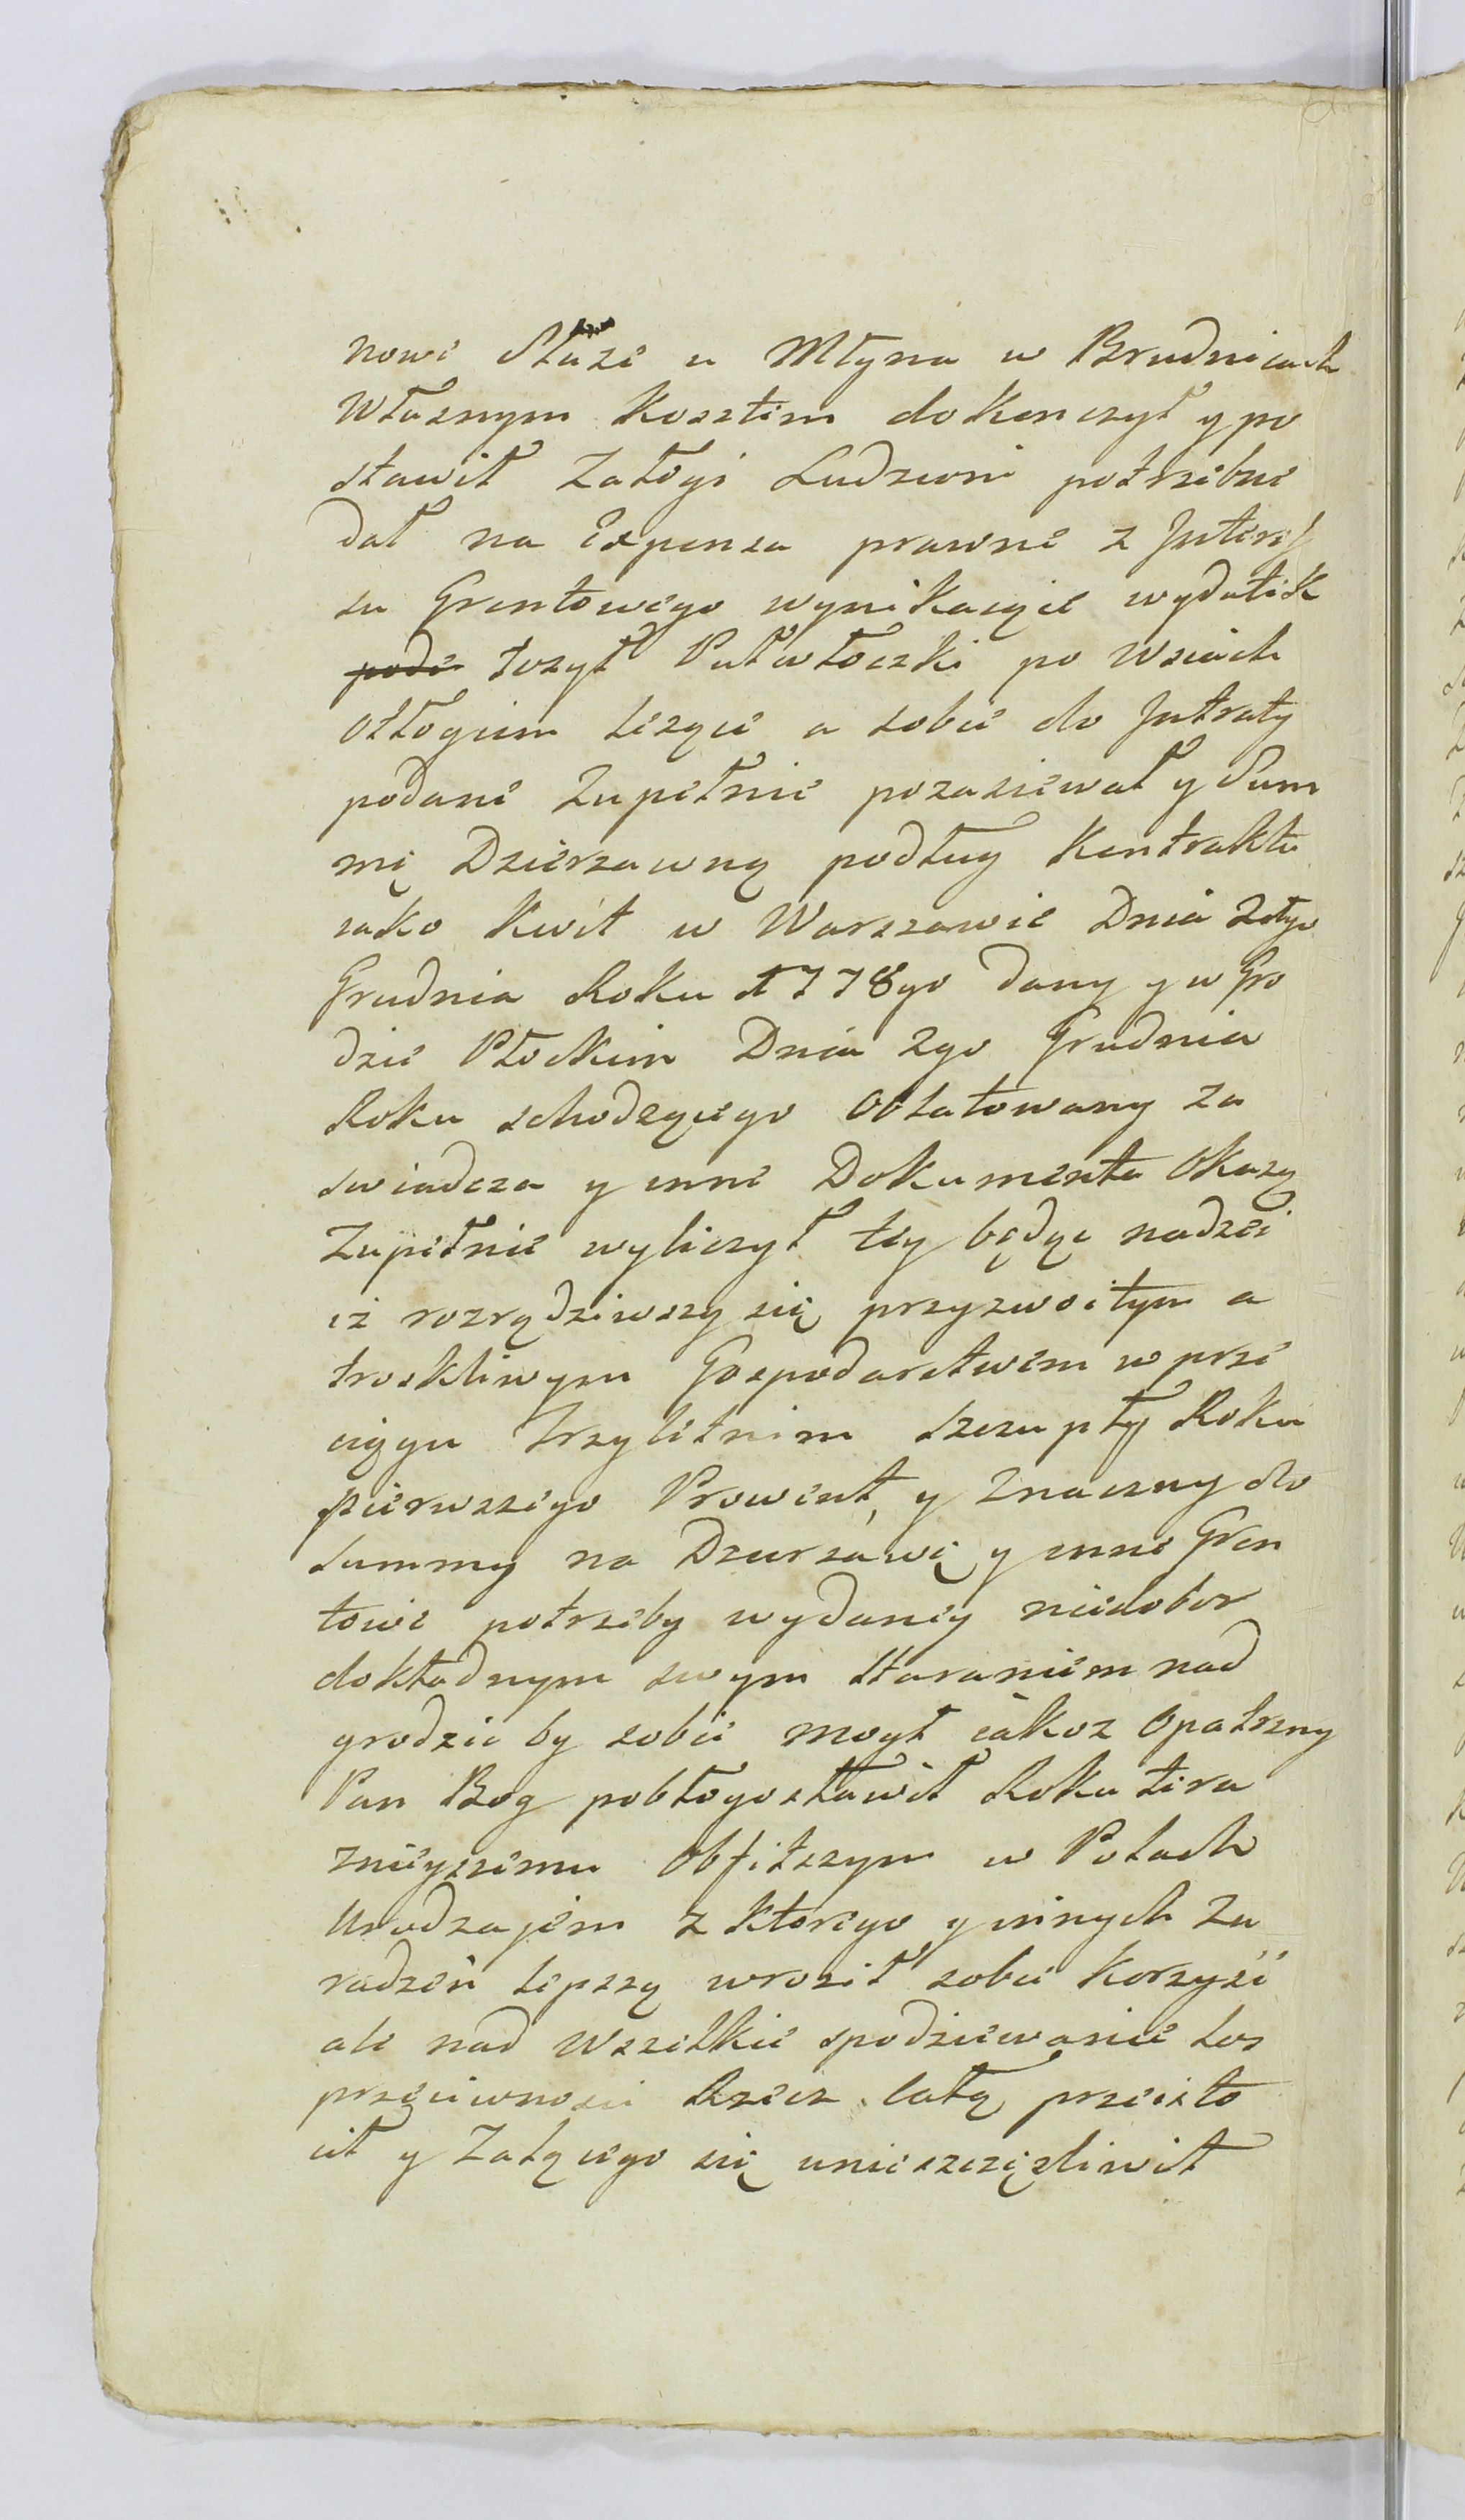 nowe Sluze u Młyna w Brudnicach
Własnym Kosztem dokonczył y po
stawił Załogi Ludziom potrzebne
dał na Expensa prawne z Interes
su Gruntowego wynikaiące wydatek
pode łozył Pułwłoczki po Wsiach
Odłogiem lezące a sobie do Intraty
podane Zupełnie pozasiewał y Sum
mę Dzierzawną podług Kontraktu
iako Kwit w Warszawie Dnia
Grudnia Roku 1778go dany y w Gro
dzie Płockim Dnia 2go Grudnia
Roku schodzącego Oblatowany za
swiadcza y inne Dokumenta Okazą
Zupełnie wyliczył tey będąc nadziei
iż rozrządziwszy się przyzwoitym a
troskliwym Gospodarstwem w prze
ciągu Trzyletnim szczupły Roku
pierwszego Prowent, y Znaczny do
summy na Dzierzawę y inne Grun
towe potrzeby wydaney niedobor
dokładnym swym staraniem nad
grodzic by sobie mogł iakoz Opatrzny
Pan Bog pobłogosławił Roku tera
znieyszemu Obfitszym w Polach
Urodzajem z Ktorego y innych Za
radzeń lepszą wroził sobie Korzysć
ale nad Wszelkie spodziewanie los
przeciwnosci Rzecz całą przeisto
cił y Zalącego się unieszczęsliwił